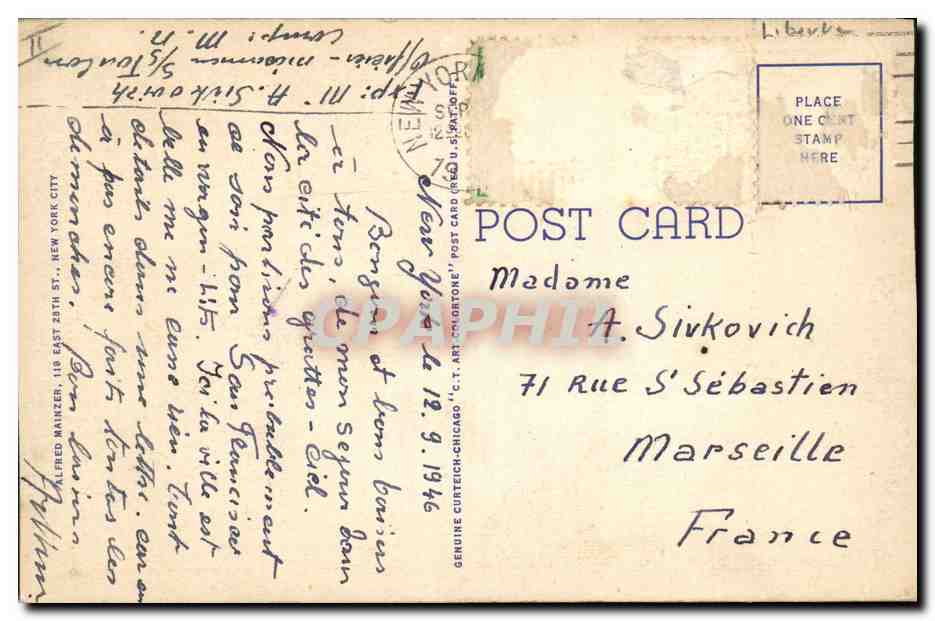 II
Exp: Mr A. Sivkovich
Officier-mécanicien S/S Toulon
Comp: M. N.
Liberté
NEW YORK
PLACE
ONE CENT
STAMP
HERE
POST CARD
New York le 12.9.1946
Bonjour et bons baisers
à tous, de mon sejour dans
la cité des grattes-ciel.
Nous partirons probablement
ce soir pour San Francisco
en wagon-lits. Ici la ville est
belle me ne cause rien. Tout
details dans une lettre. car on
a pas encore faits toutes les
demmarches. Bon baisers
Madame
A. Sivkovich
71 Rue St Sébastien
Marseille
France
GENUINE CURTEICH-CHICAGO "C.T. ART-COLORTONE" POST CARD (REG. U.S. PAT. OFF.)
ALFRED MAINZER, 118 EAST 28TH ST., NEW YORK CITY
CPAPHIL